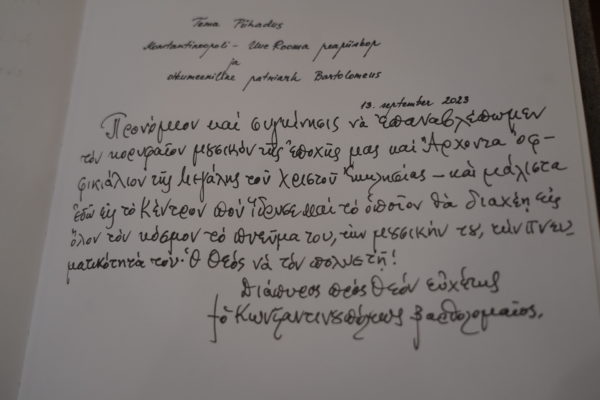 Tema Pühadus
Konstantinoopoli - Uue Rooma peapiiskop
ja
oikumeeniline patriarh Bartolomeus
13. september 2023
Προνόμιον καί συγκίνησις νὰ ἐπαναβλέπωμεν
τὸν κορυφαῖον μουσικόν τῆς ἐποχῆς μας καί Ἄρχοντα Ὀφ-
φικιάλιον τῆς Μεγάλης τοῦ Χριστοῦ Ἐκκλησίας - καὶ μάλιστα
ἐδῶ εἰς τὸ Κέντρον πού ἵδρυσε καὶ τὸ ὁποῖον θὰ διαχέῃ εἰς
ὅλον τὸν κόσμον τὸ πνεῦμα του, τὴν μουσικήν του, τὴν πνευ-
ματικότητά του. Ὁ Θεός νὰ τὸν πολυετῇ!
Διάπυρος πρός Θεόν εὐχέτης
† ὁ Κωνσταντινουπόλεως Βαρθολομαῖος.